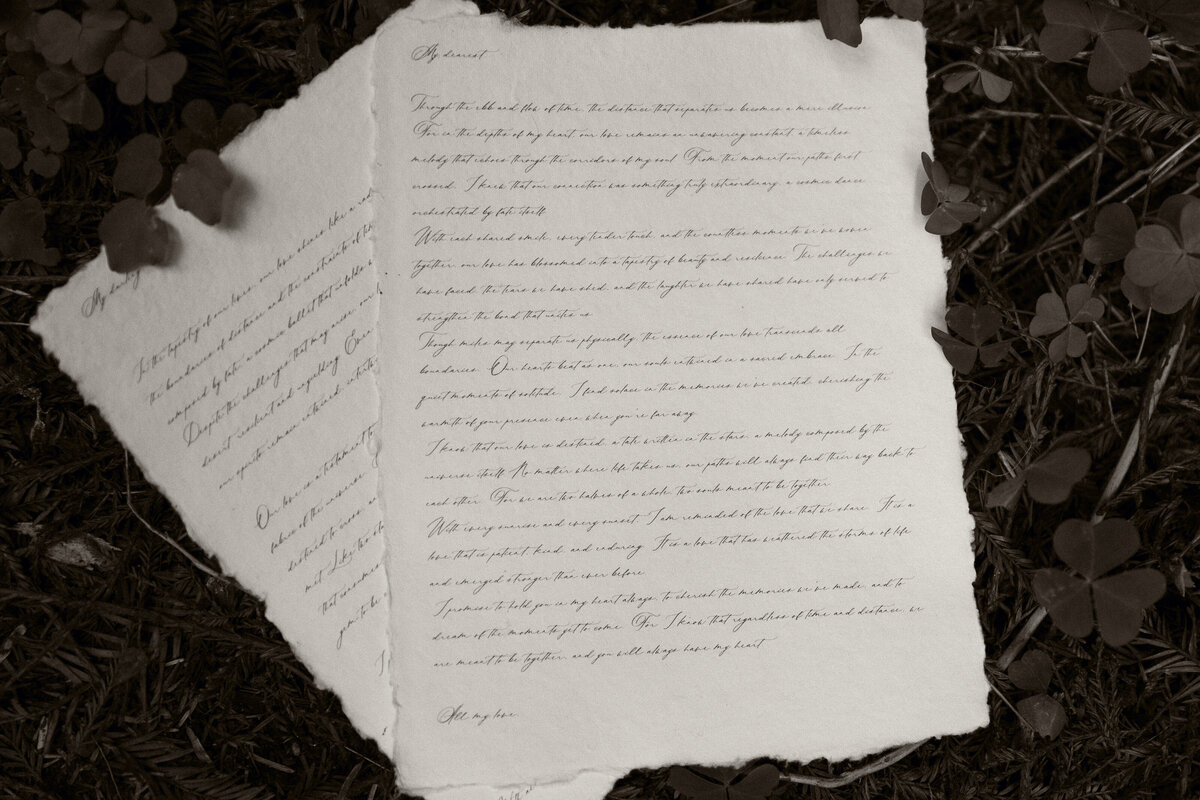 My dearest
Through the ebb and flow of time, the distance that separates us becomes a mere illusion
For in the depths of my heart our love remains an unwavering constant, a timeless
melody that echoes through the corridors of my soul From the moment our paths first
crossed, I knew that our connection was something truly extraordinary, a cosmic dance
orchestrated by fate itself
With each shared smile, every tender touch, and the countless moments we've woven
together, our love has blossomed into a tapestry of beauty and resilience. The challenges we
have faced, the tears we have shed, and the laughter we have shared have only served to
strengthen the bond that unites us
Though miles may separate us physically, the essence of our love transcends all
boundaries. Our hearts beat as one, our souls entwined in a sacred embrace. In the
quiet moments of solitude, I find solace in the memories we've created, cherishing the
warmth of your presence even when you're far away
I know that our love is destined, a fate written in the stars, a melody composed by the
universe itself. No matter where life takes us, our paths will always find their way back to
each other. For we are two halves of a whole, two souls meant to be together
With every sunrise and every sunset, I am reminded of the love that we share. It is a
love that is patient, kind, and enduring. It is a love that has weathered the storms of life
and emerged stronger than ever before
I promise to hold you in my heart always, to cherish the memories we've made, and to
dream of the moments yet to come. For I know that regardless of time and distance, we
are meant to be together, and you will always have my heart
All my love,
My darling
In the tapestry of our lives, our love shines like a
the boundaries of distance and the constraints of
composed by fate a cosmic ballet that unfolds
Despite the challenges that may arise, our
desert, resilient and unyielding Even
our spirits remain entwined
Our love is a testament
fabric of the universe
destined to cross
met Like two
that consumes
to be